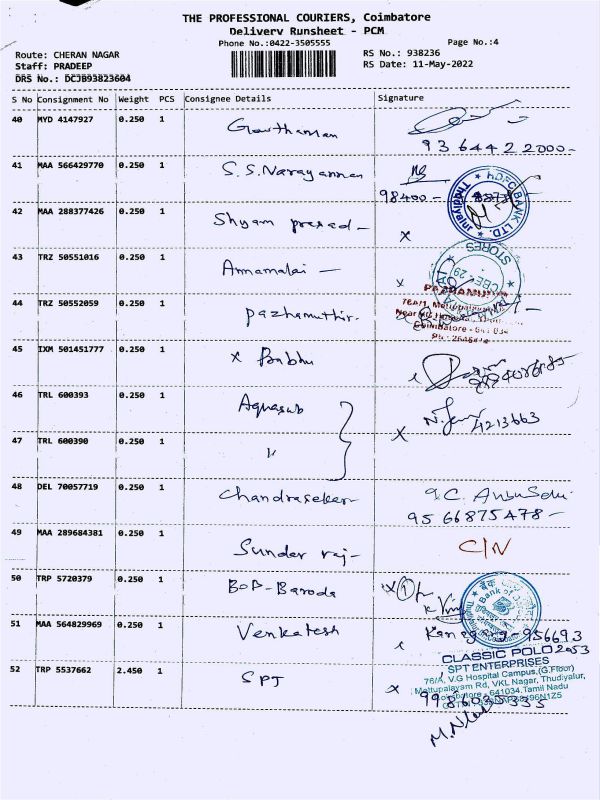 THE PROFESSIONAL COURIERS, Coimbatore
Delivery Runsheet - PCM
Phone No.:0422-3505555
Page No.:4
Route: CHERAN NAGAR
RS No.: 938236
Staff: PRADEEP
RS Date: 11-May-2022
DRS No.: DCJB93823604
S No Consignment No Weight PCS Consignee Details Signature
40 MYD 4147927 0.250 1 Gowthaman
9364422000-
41 MAA 566429770 0.250 1 S.S.Narayanan
98400-
HDFC BANK LTD.
Thudiyalur
42 MAA 288377426 0.250 1 Shyam prasad- x
43 TRZ 50551016 0.250 1 Annamalai - x
STORES
CBE-29
44 TRZ 50552059 0.250 1 pazhamuthir.
76A/1, Mettupalayam
Coimbatore - 641 034
45 IXM 501451777 0.250 1 x Babhu
46 TRL 600393 0.250 1 Aquasub x
4213663
47 TRL 600390 0.250 1 "
48 DEL 70057719 0.250 1 Chandrasekar
9566875478-
49 MAA 289684381 0.250 1 Sunder raj- C/N
50 TRP 5720379 0.250 1 BOP-Baroda x
Bank of
51 MAA 564829969 0.250 1 Venkatesh
956693
2053
CLASSIC POLO
SPT ENTERPRISES
52 TRP 5537662 2.450 1 SPT x
76/A, V.G Hospital Campus,(G.Floor)
Mettupalayam Rd, VKL Nagar, Thudiyalur,
Coimbatore - 641034.Tamil Nadu